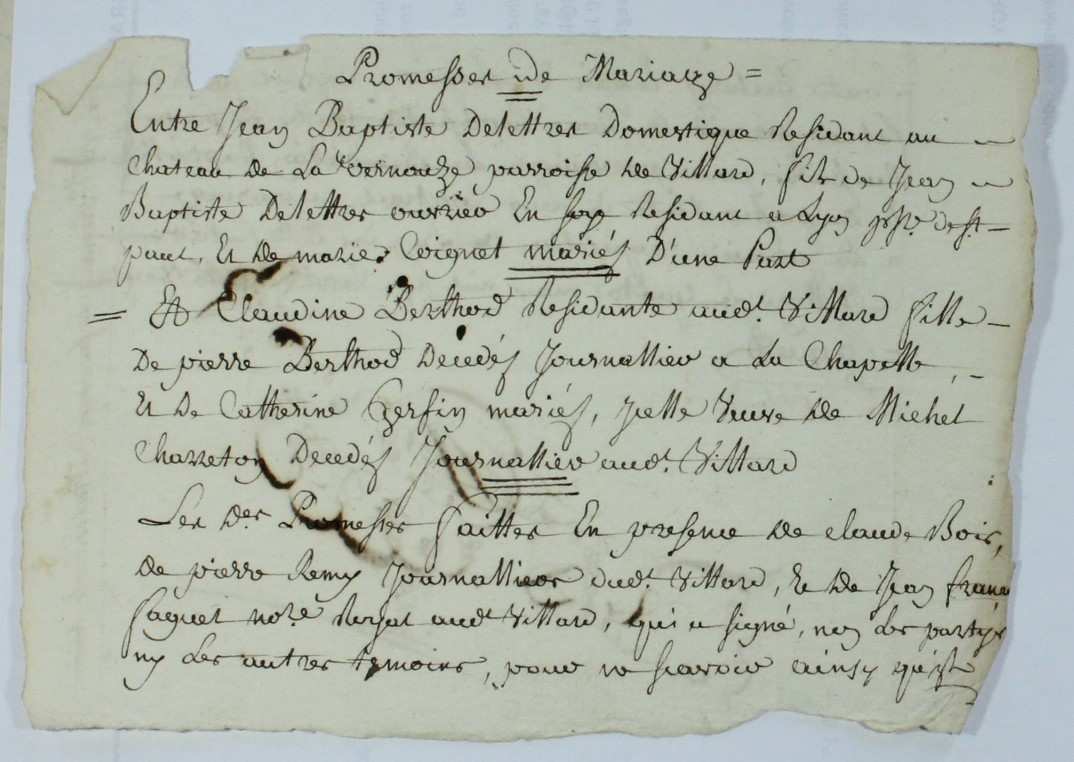 Promesses de Mariage =
Entre Jean Baptiste Delettres Domestique Residant au
Chateau de La Vernouze parroisse de Villard, fils de Jean
Baptiste Delettres ouvrier En soye Residant a Lyon
part, Et de marie Coignet mariés D'une Part
= Et Claudine Berthod Residante aud.t Villard fille
De pierre Berthod Decedés Journallier a La Chapelle,
Et De Catherine mariés, jcelle Veuve de Michel
Charreton Decedés Journallier aud.t Villard
Les d.es Promesses faittes En presence de claude Bois,
de pierre Remy Journalliers dud.t Villard, Et De Jean
Saguet no.re aud.t Villard, qui a signé, non Les partyes
ny Les autres temoins, pour ne scavoir ainsy